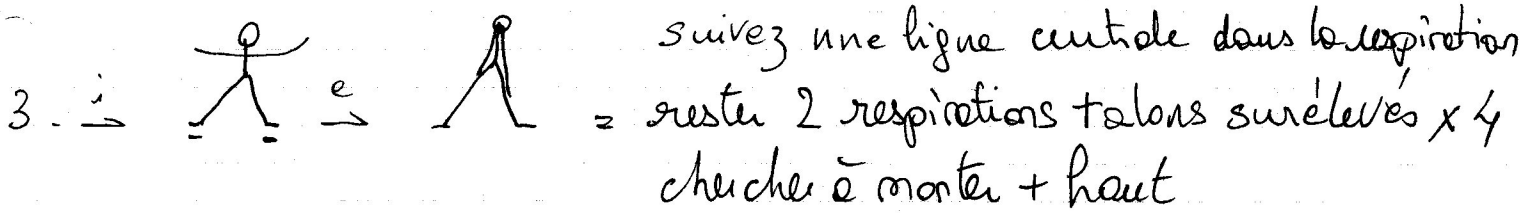 suivez une ligne centrale dans la respiration
3. i → e → = rester 2 respirations talons surélevés x 4
chercher à monter + haut